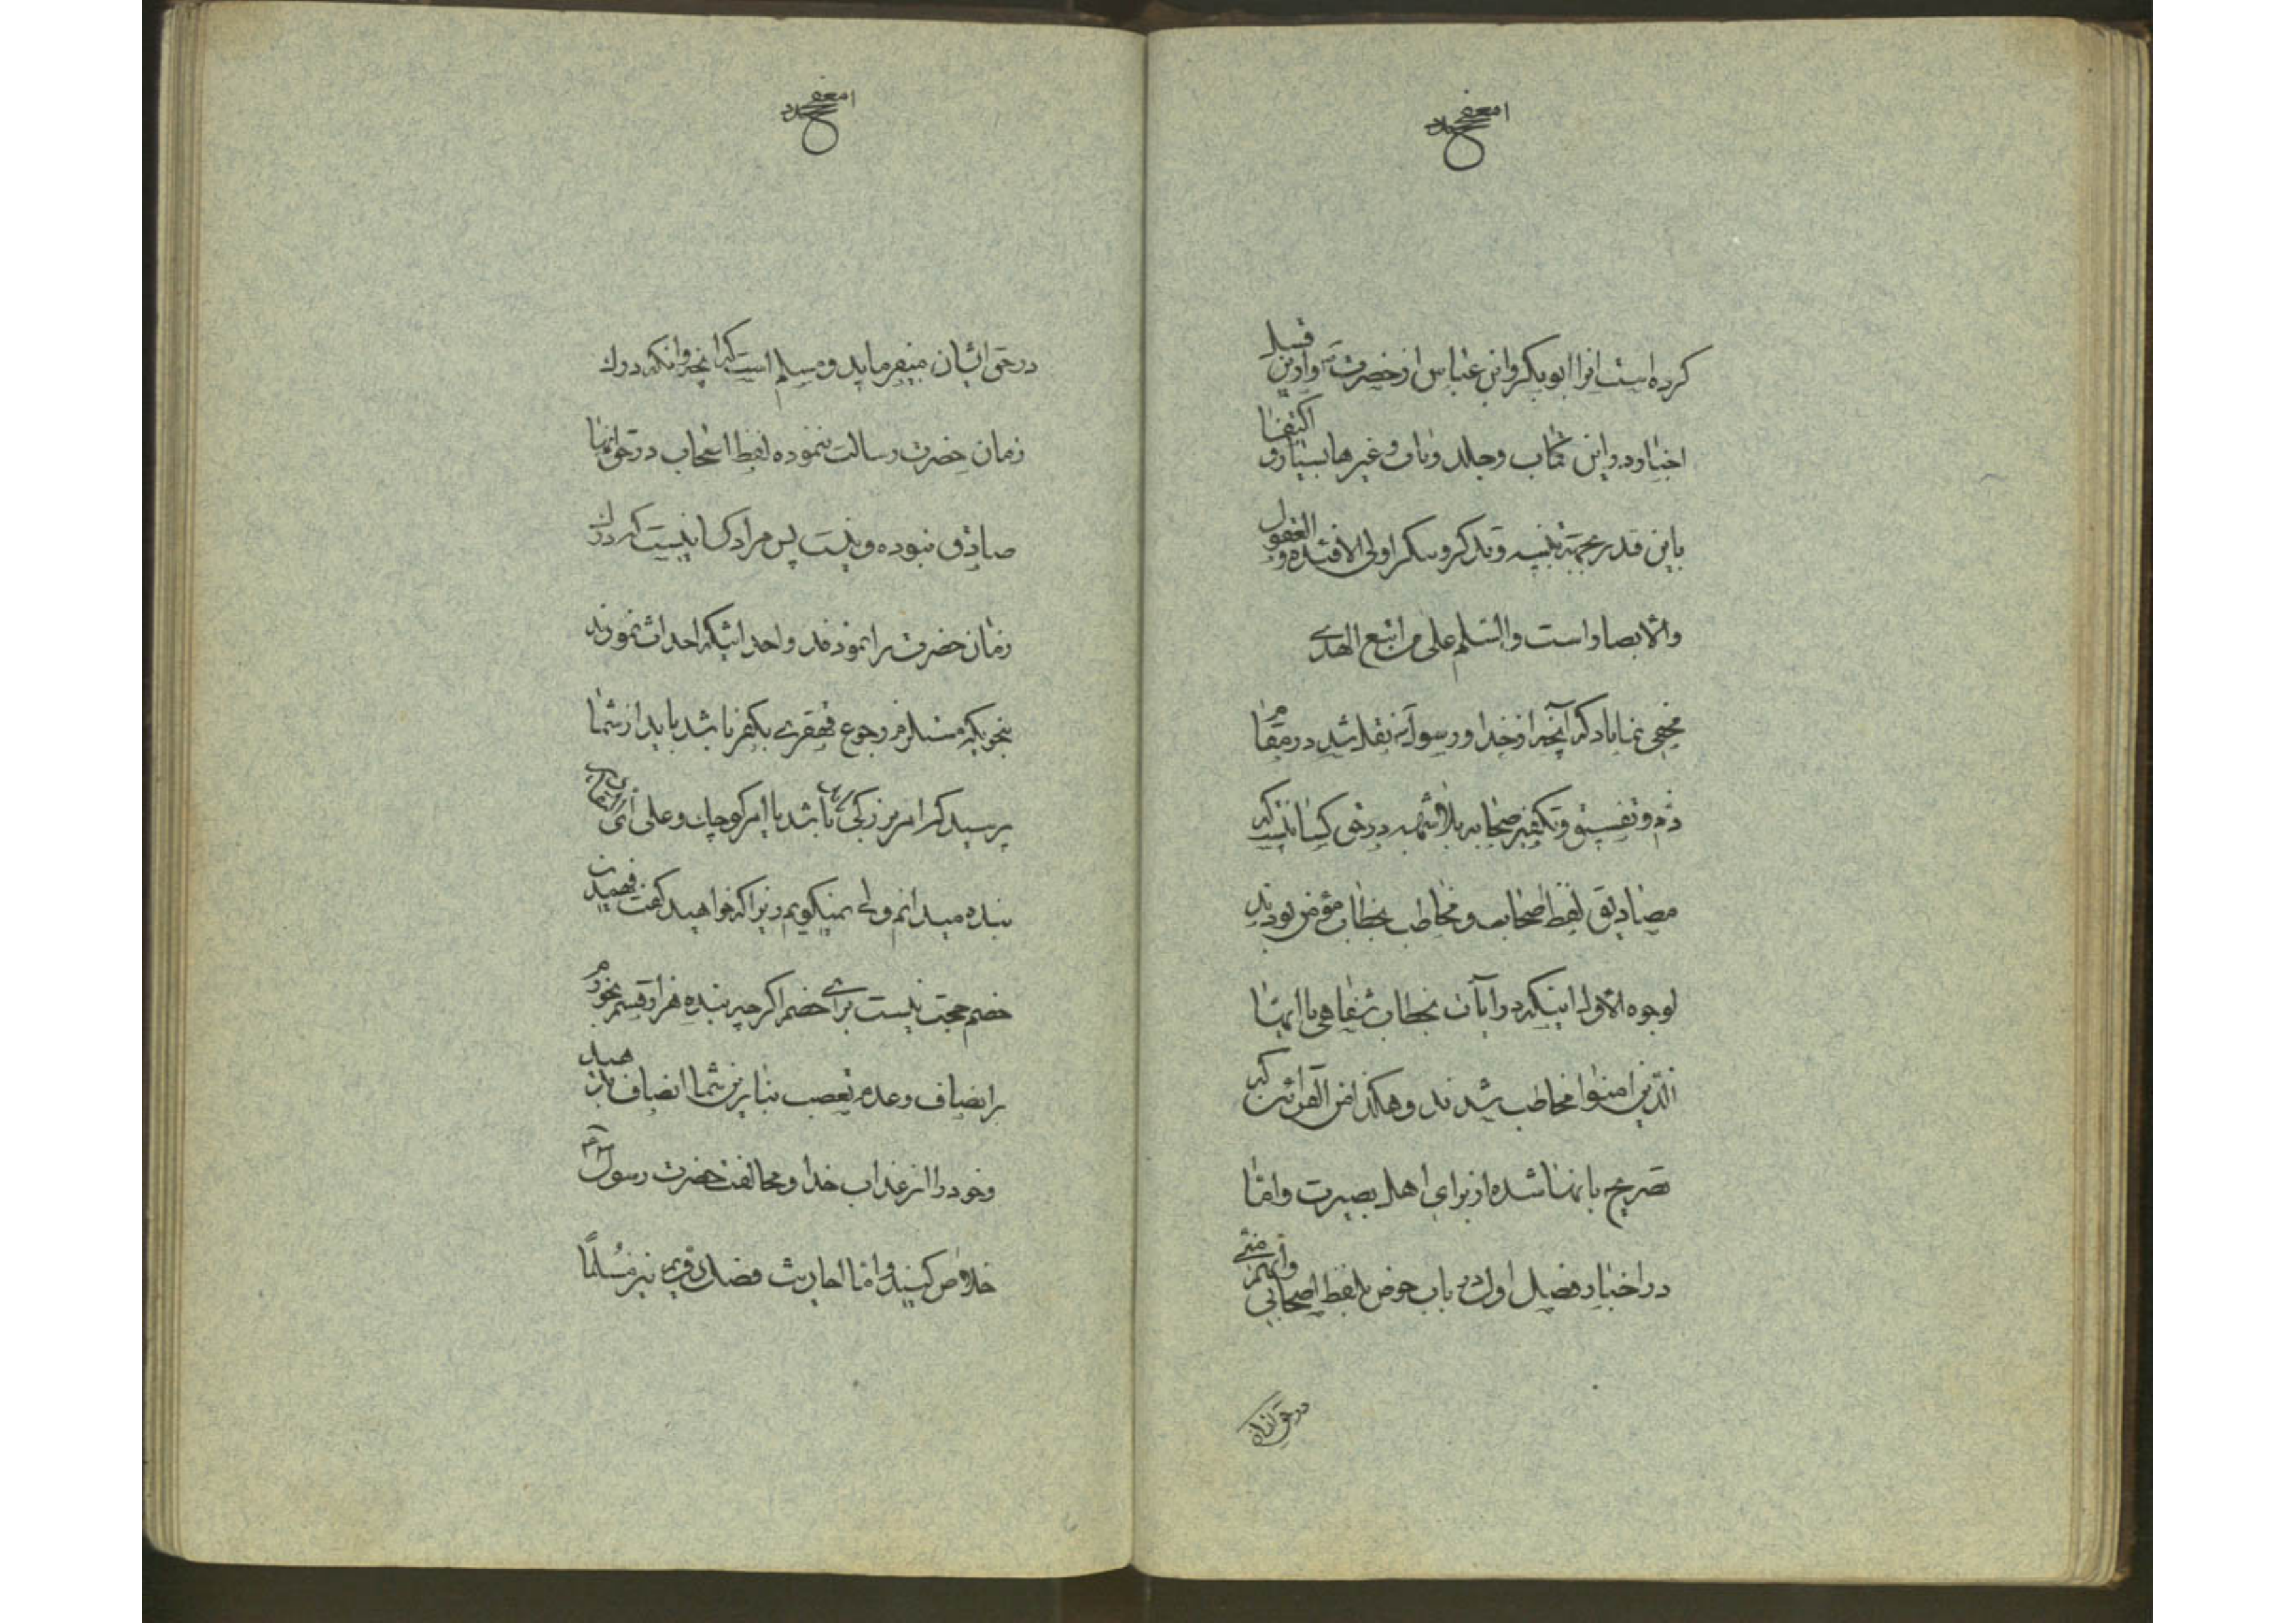 کرده است انرا ابوبکر و ابن عباس از حضرت و از این قبیل
اخبار در این کتاب و جلد و غیرها بسیار و اکتفا
باین قدر بجهة تنبیه و تذکر اولی الافئدة و العقول
والابصار است والسّلم علی من اتبع الهدی
مخفی نماناد که آنچه از خدا و رسول نقل شد در مقام
ذم و تفسیق و تکفیر صحابه بلاشبهه در حق کسانیست که
مصادیق لفظ صحابه و مخاطب بخطاب مؤمن بودند
لوجوه الاول اینکه در ایات بخطاب شفاهی یا ایها
الّذین امنوا مخاطب شدند و هکذا من القرائن که
تصریح بانها شده از برای اهل بصیرت و امّا
در اخبار فضیل اول در باب حوض بلفظ اصحابی وانهم منّی
در حق ایشان
در حق ایشان میفرماید و مسلم است که انچه وانکه درک
زمان حضرت رسالت ننموده لفظ اصحاب در حق انها
صادق نبوده و نیست پس مراد کسانیست که درک
زمان حضرت را نمودند و احداثیکه احداث نمودند
بنحویکه مستلزم رجوع قهقری بکفر باشد باید از شما
پرسید که امر بزرگی باشد یا امر کوچک و علی ای
بنده میدانم ولی نمیگویم زیرا که خواهید گفت فهمیدن
خصم حجت نیست برای خصم اگر چه بنده هزار قسم بخورم
بر انصاف و عدم تعصب بنابرین شما انصاف بدهید
و خود را از عذاب خدا و مخالفت حضرت رسول
خلاص کنید و امّا احادیث فضل نیز مسلمًا